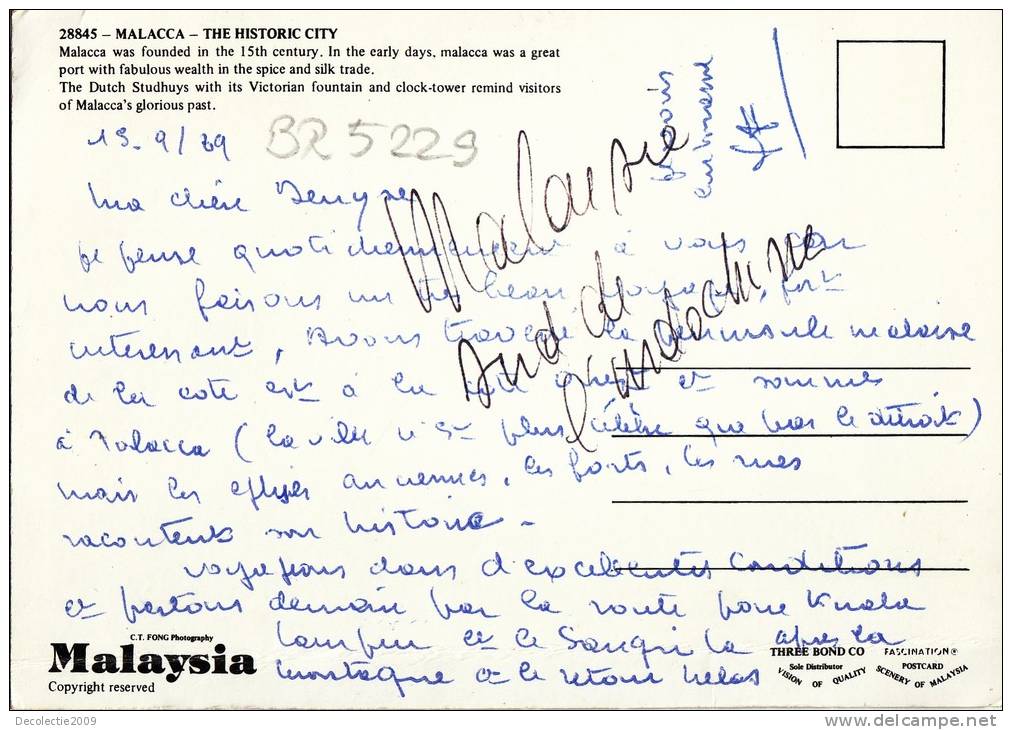 28845 – MALACCA – THE HISTORIC CITY
Malacca was founded in the 15th century. In the early days, malacca was a great
port with fabulous wealth in the spice and silk trade.
The Dutch Studhuys with its Victorian fountain and clock-tower remind visitors
of Malacca's glorious past.
BR 5229
Malaysie
sud de
l'indochine
Ma chère Denyse
je pense quotidiennement à vous car
nous faisons un très beau voyage, fort
intéressant, Avons traversé la péninsule malaise
de la cote est à la cote ouest et sommes
à Malacca (la ville n'est plus célèbre que par le détroit)
mais les églises anciennes, les forts, les rues
racontent son histoire -
voyageons dans d'excellentes conditions
et partons demain par la route pour Kuala
Lumpur et le Sangri la après la
montagne et le retour helas
C.T. FONG Photography
Malaysia
Copyright reserved
THREE BOND CO
Sole Distributor
VISION OF QUALITY
FASCINATION®
POSTCARD
SCENERY OF MALAYSIA
Decolectie2009
www.delcampe.net